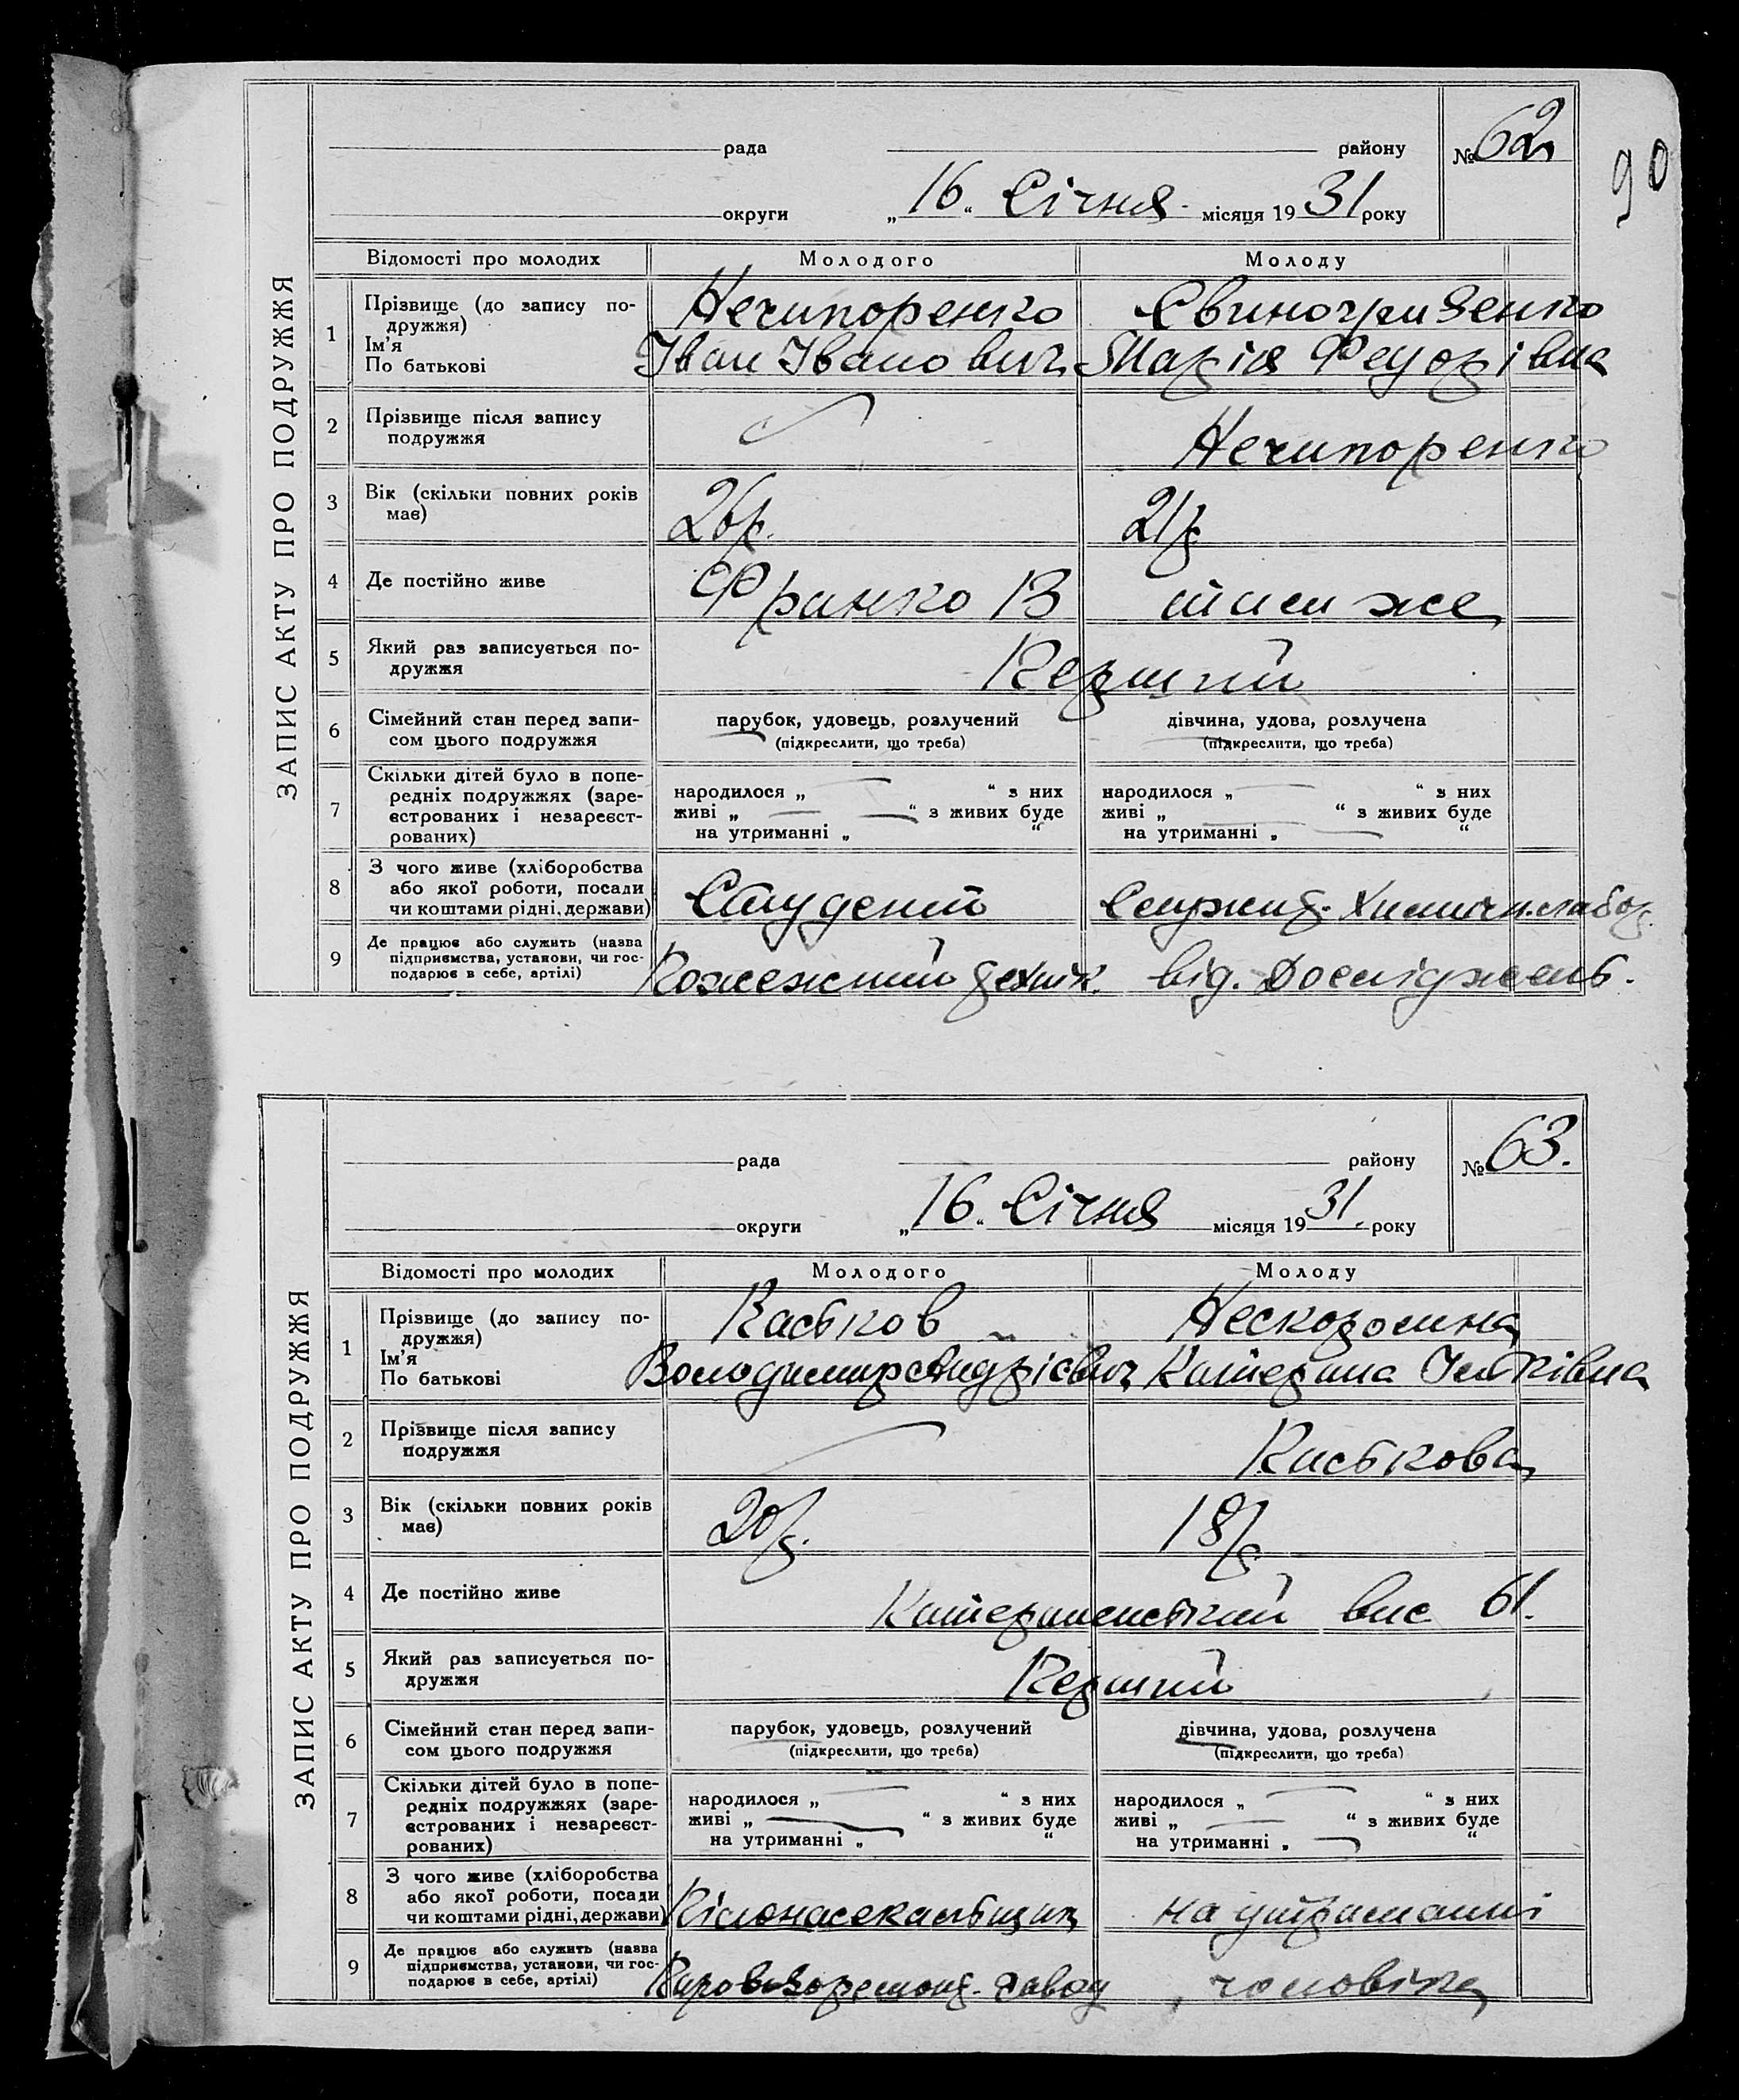 90
ЗАПИС АКТУ ПРО ПОДРУЖЖЯ
рада району № 62
округи „16“ Січня місяця 1931 року
Відомості про молодих Молодого Молоду
1 Прізвище (до запису подружжя) Нечипоренко Свиногризенко
Ім'я По батькові Іван Іванович Марія Федорівна
2 Прізвище після запису подружжя Нечипоренко
3 Вік (скільки повних років має) 26р. 21р
4 Де постійно живе Франко 13 там же
5 Який раз записується подружжя Перший
6 Сімейний стан перед записом цього подружжя парубок, удовець, розлучений дівчина, удова, розлучена
(підкреслити, що треба) (підкреслити, що треба)
7 Скільки дітей було в попередніх подружжях (зареєстрованих і незареєстрованих)
народилося „ “ з них народилося „ “ з них
живі „ “ з живих буде живі „ “ з живих буде
на утриманні „ “ на утриманні „ “
8 З чого живе (хліборобства або якої роботи, посади чи коштами рідні, держави) Студент
9 Де працює або служить (назва підприємства, установи, чи господарює в себе, артілі) від. Досліджень.
ЗАПИС АКТУ ПРО ПОДРУЖЖЯ
рада району № 63.
округи „16“ Січня місяця 1931 року
Відомості про молодих Молодого Молоду
1 Прізвище (до запису подружжя) Нескоромна
Ім'я По батькові Володимир Андрієвич Катерина
2 Прізвище після запису подружжя
3 Вік (скільки повних років має) 20р. 18р
4 Де постійно живе 61.
5 Який раз записується подружжя Перший
6 Сімейний стан перед записом цього подружжя парубок, удовець, розлучений дівчина, удова, розлучена
(підкреслити, що треба) (підкреслити, що треба)
7 Скільки дітей було в попередніх подружжях (зареєстрованих і незареєстрованих)
народилося „ “ з них народилося „ “ з них
живі „ “ з живих буде живі „ “ з живих буде
на утриманні „ “ на утриманні „ “
8 З чого живе (хліборобства або якої роботи, посади чи коштами рідні, держави) на утриманні
9 Де працює або служить (назва підприємства, установи, чи господарює в себе, артілі) Паровозоремонт. завод чоловіка